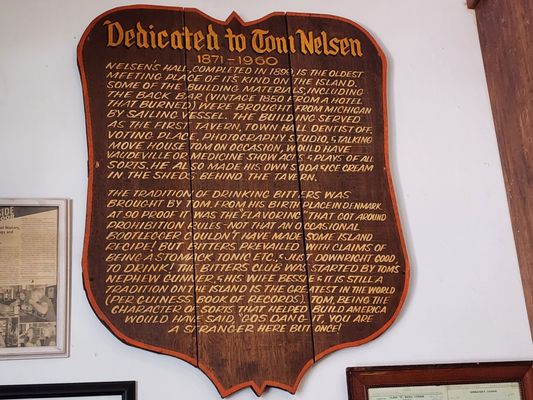 Dedicated to Toni Nelsen
1871-1960
NELSEN'S HALL, COMPLETED IN 1899, IS THE OLDEST
MEETING PLACE OF ITS KIND ON THE ISLAND.
SOME OF THE BUILDING MATERIALS, INCLUDING
THE BACK BAR (VINTAGE 1850 FROM A HOTEL
THAT BURNED) WERE BROUGHT FROM MICHIGAN
BY SAILING VESSEL. THE BUILDING SERVED
AS THE FIRST TAVERN, TOWN HALL DENTIST OFF.
VOTING PLACE, PHOTOGRAPHY STUDIO, & TALKING
MOVE HOUSE TOM ON OCCASION, WOULD HAVE
VAUDEVILLE OR MEDICINE SHOW ACTS & PLAYS OF ALL
SORTS. HE ALSO MADE HIS OWN SODA & ICE CREAM
IN THE SHEDS BEHIND THE TAVERN.
THE TRADITION OF DRINKING BITTERS WAS
BROUGHT BY TOM, FROM HIS BIRTH PLACE IN DENMARK.
AT 90 PROOF IT WAS THE "FLAVORING" THAT GOT AROUND
PROHIBITION RULES NOT THAT AN OCCASIONAL
BOOTLEGGER COULDN'T HAVE MADE SOME ISLAND
RECIPE! BUT BITTERS PREVAILED WITH CLAIMS OF
BEING A STOMACK TONIC ETC., & JUST DOWNRIGHT GOOD
TO DRINK! THE BITTERS CLUB WAS STARTED BY TOM'S
NEPHEW GUNNER & HIS WIFE BESSIE & IT IS STILL A
TRADITION ON THE ISLAND IS THE GREATEST IN THE WORLD
(PER GUINESS BOOK OF RECORDS). TOM, BEING THE
CHARACTER OF SORTS THAT HELPED BUILD AMERICA
WOULD HAVE SAID, "GOS DANG IT, YOU ARE
A STRANGER HERE BUT ONCE!